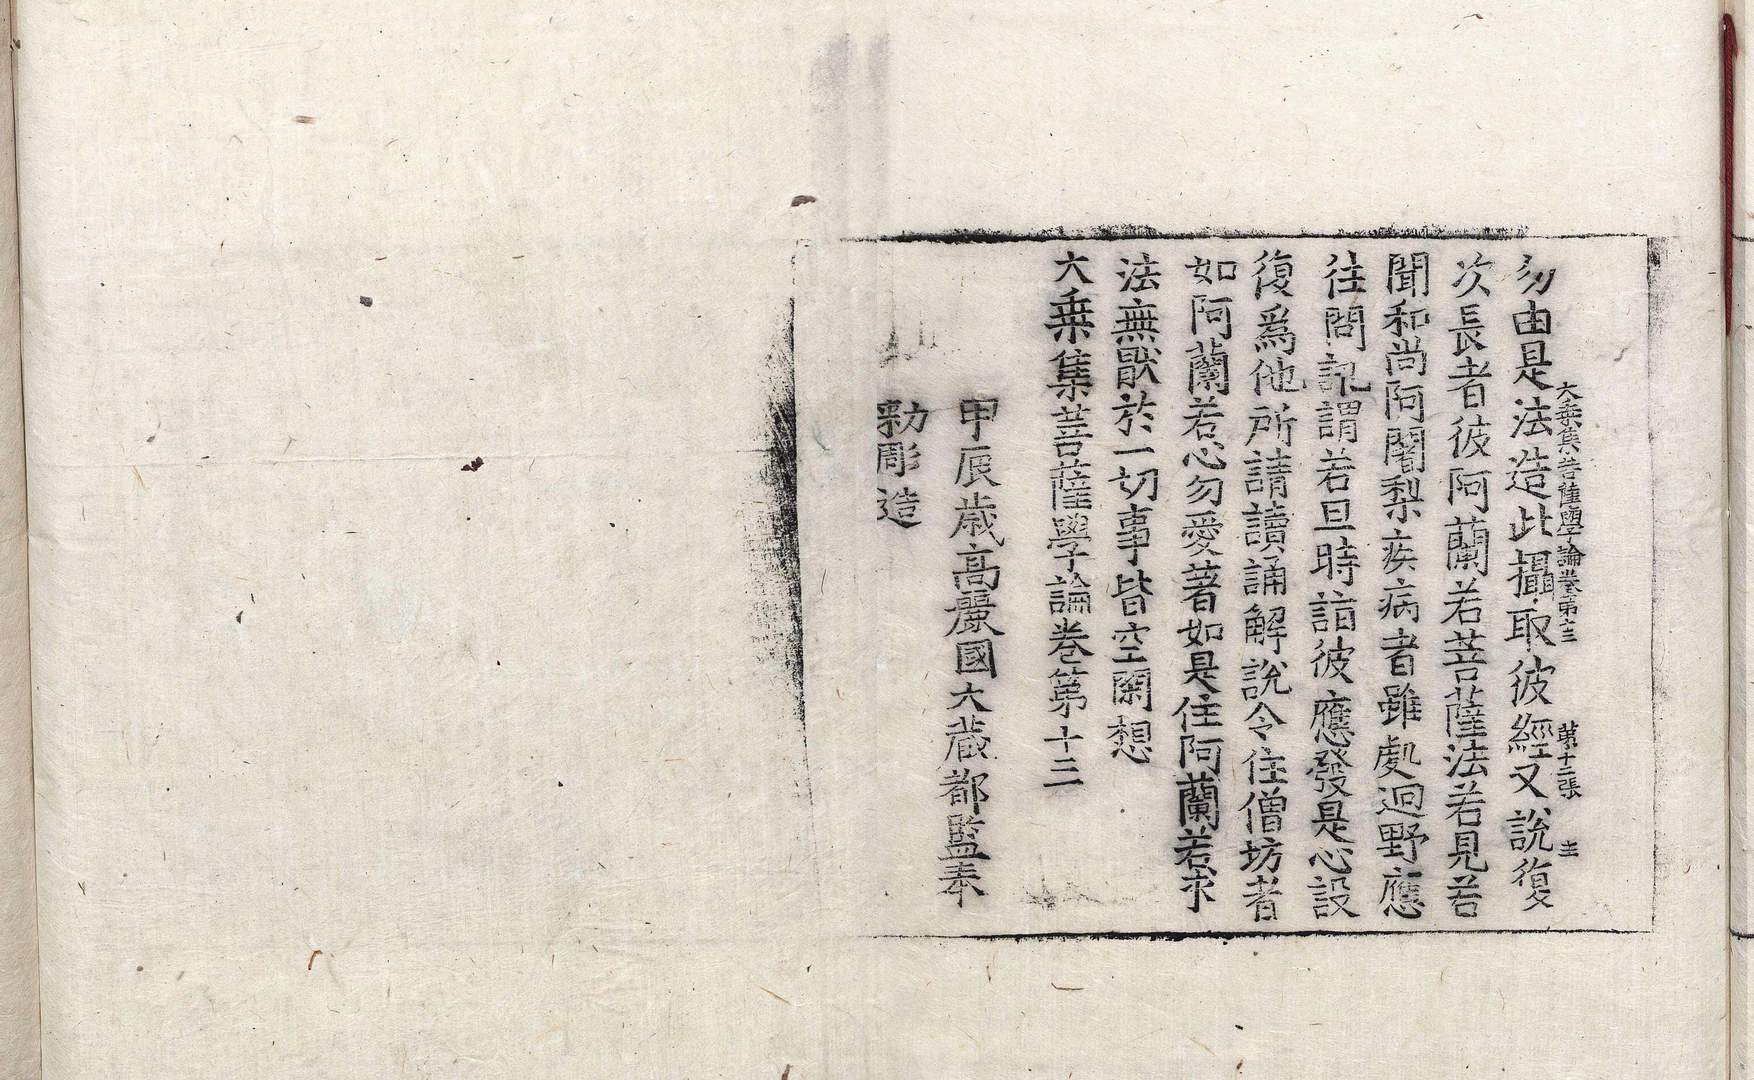 大乗集菩薩學論卷第十三 第十二張 主
勿由是法造此攝取彼經又說復
次長者彼阿蘭若菩薩法若見若
聞和尚阿闍梨疾病者雖處迥野應
往問訊謂若旦時詣彼應發是心設
復爲他所請讀誦解說令住僧坊者
如阿蘭若心勿愛著如是住阿蘭若求
法無猒於一切事皆空閑想
大乗集菩薩學論卷第十三
甲辰歳高麗國大藏都監奉
勑彫造